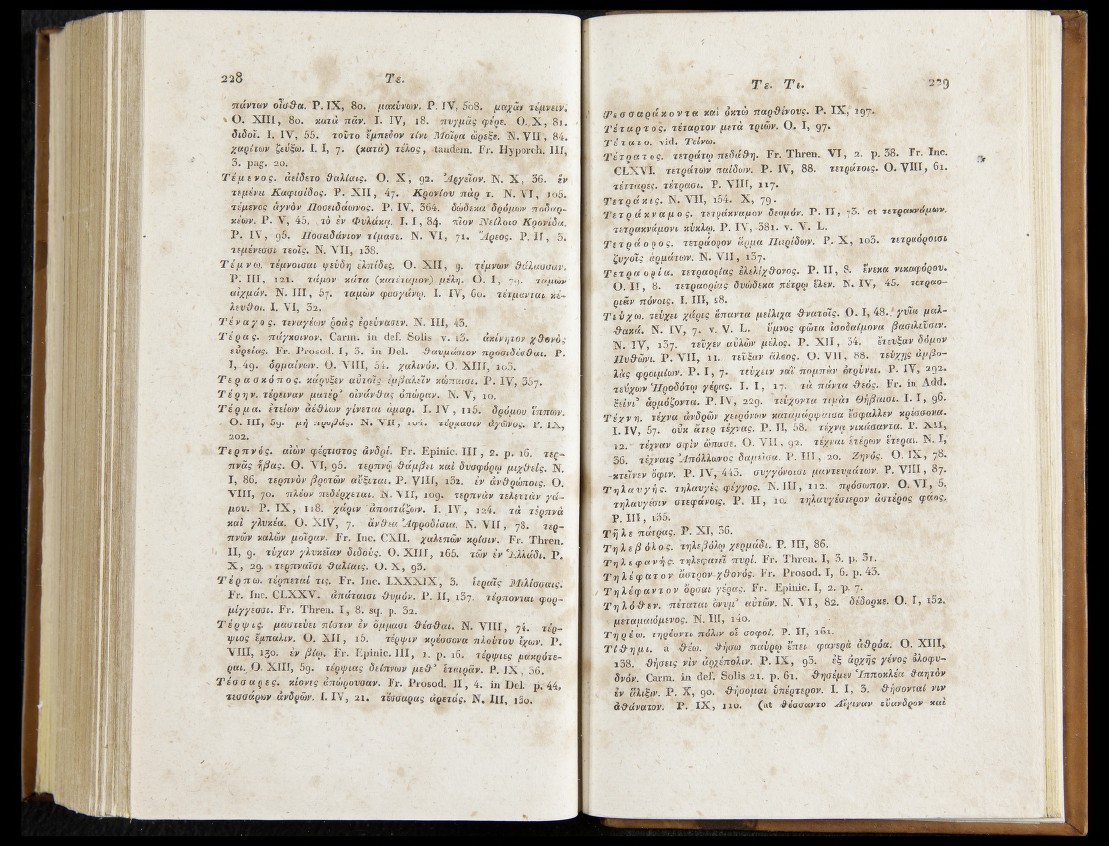 228 Τε.
πάντων οἶσθα. P. IX, 80. μακύνων. P. IV, 508. μαχᾶν τέμνειν.
O. XIII, 80. κατὰ πᾶν. I. IV, 18. πυγμᾶς φέρε. O. X, 81.
διδοῖ. I. IV, 55. τοῦτο ἔμπεδον τίνι Μοῖρα ὤρεξε. N. VII, 84.
χαρίτων ζεύξω. I. I, 7. (κατὰ) τέλος, tandem. Fr. Hyporch. III,
3. pag. 20.
Τέμενος. ἀείδετο θαλίαις. O. X, 92. Ἀργεῖον. N. X, 36. ἐν
τεμένει Καφισίδος. P. XII, 47. Κρονίου πὰρ τ. N. VI, 105.
τέμενος ἁγνὸν Ποσειδάωνος. P. IV, 364. δώδεκα δρόμων ποδαρ-
κέων. P. V, 45. τὸ ἐν Φυλάκᾳ. I. I, 84. πῖον Νείλοιο Κρονίδα.
P. IV, 95. Ποσειδάνιον τίμασε. N. VI, 71. Ἄρεος. P. II, 3.
τεμένεσσι τεοῖς. N. VII, 138.
Τέμνω. τέμνοισαι ψεύδη ἐλπίδες. O. XII, 9. τέμνων θάλασσαν.
P. III, 121. τάμον κάτα (κατέταμον) μέλη. O. I, 79. ταμὼν
αἰχμᾷν. N. III, 57. ταμὼν φασγάνῳ. I. IV, 60. τέτμανται κέ-
λευθοι. I. VI, 32.
Τέναγος. τεναγέων ῥοὰς ἐρεύνασεν. N. III, 43.
Τέρας. πάγκοινον. Carm. in def. Solis v. 13. ἀκίνητον χθονὸς
εὐρείας. Fr. Prosod. I, 3. in Del. θαυμάσιον προσιδέσθαι. P.
I, 49. ὁρμαίνων. O. VIII, 54. χαλινόν. O. XIII, 103.
Τερασκόπος. κάρυξεν αὐτοῖς ἐμβαλεῖν κώπαισι. P. IV, 357.
Τέρην. τέρειναν ματέρ' οἰνάνθας ὀπώραν. N. V, 10.
Τέρμα. ἐτείων ἀέθλων γίνεται ἆμαρ. I. IV, 115. δρόμου ἵππων.
O. III, 59. μὴ προβάς. N. VII, 104. τέρμασιν ἀγῶνος. P. IX,
202.
Τερπνός. αἰὼν φέρτιστος ἀνδρί. Fr. Epinic. III, 2. p. 16. τερ-
πνᾶς ἥβας. O. VI, 95. τερπνῷ θάμβει καὶ δυσφόρῳ μιχθείς. N.
I, 86. τερπνὸν βροτῶν αὔξεται. P. VIII, 132. ἐν ἀνθρώποις. O.
VIII, 70. πλέον πεδέρχεται. N. VII, 109. τερπνὰν τελευτὰν γά-
μου. P. IX, 118. χάριν ἀποστάζων. I. IV, 124. τὰ τερπνὰ
καὶ γλυκέα. O. XIV, 7. ἄνθεα Ἀφροδίσια. N. VII, 78. τερ-
πνῶν καλῶν μοῖραν. Fr. Inc. CXII. χαλεπῶν κρίσιν. Fr. Thren.
II, 9. τύχαν γλυκεῖαν διδούς. O. XIII, 165. τῶν ἐν Ἑλλάδι. P.
X, 29. τερπναῖσι θαλίαις. O. X, 93.
Τέρπω. τέρπεταί τις. Fr. Inc. LXXXIX, 3. ἱεραῖς Μελίσσαις.
Fr. Inc. CLXXV. ἁπάταισι θυμόν. P. II, 137. τέρπονται φορ-
μίγγεσσι. Fr. Thren. I, 8. sq. p. 32.
Τέρψις. μαστεύει πίστιν ἐν ὄμμασι θέσθαι. N. VIII, 74. τέρ-
ψιος ἔμπαλιν. O. XII, 15. τέρψιν κρέσσονα πλούτου ἔχων. P.
VIII, 130. ἐν βίῳ. Fr. Epinic. III, 1. p. 16. τέρψιες μακρότε-
ραι. O. XIII, 59. τέρψιας δείπνων μεθ' ἑταιρᾶν. P. IX, 36.
Τέσσαρες. κίονες ἀπώρουσαν. Fr. Prosod. II, 4. in Del. p. 44.
τεσσάρων ἀνδρῶν. I. IV, 21. τέσσαρας ἀρετάς. N. III, 130.
Τε. Τι. 229
Τεσσαράκοντα καὶ ὀκτὼ παρθένους. P. IX, 197.
Τέταρτος. τέταρτον μετὰ τριῶν. O. I, 97.
Τέτατο. vid. Τείνω.
Τέτρατος. τετράτῳ πεδάθη. Fr. Thren. VI, 2. p. 38. Fr. Inc.
CLXVI. τετράτων παίδων. P. IV, 88. τετράτοις. O. VIII, 61.
τέτταρες. τέτρασι. P. VIII, 117.
Τετράκις. N. VII, 154. X, 79.
Τετράκναμος. τετράκναμον δεσμόν. P. II, 73. et τετρακνάμων.
τετρακνάμονι κύκλῳ. P. IV, 381. v. V. L.
Τετράορος. τετράορον ἅρμα Πιερίδων. P. X, 103. τετραόροισι
ζυγοῖς ἁρμάτων. N. VII, 137.
Τετραορία. τετραορίας ἐλελίχθονος. P. II, 8. ἕνεκα νικαφόρου.
O. II, 8. τετραορίας δυώδεκα πέτρῳ ἕλεν. N. IV, 45. τετραο-
ριᾶν πόνοις. I. III, 28.
Τεύχω. τεύχει χάρις ἅπαντα μείλιχα θνατοῖς. O. I, 48. γυῖα μαλ-
θακά. N. IV, 7. v. V. L. ὕμνος φῶτα ἰσοδαίμονα βασιλεῦσιν.
N. IV, 137. τεῦχεν αὐλῶν μέλος. P. XII, 34. ἔτευξαν δόμον
Πυθῶνι. P. VII, 11. τεῦξαν ἄλσος. O. VII, 88. τεύχῃς ἀμβο-
λὰς φροιμίων. P. I, 7. τεύχειν καὶ πομπὰν ὀτρύνει. P. IV, 292.
τεύχων Ἡροδότῳ γέρας. I. I, 17. τὰ πάντα θεός. Fr. in Add.
ξείνι' ἁρμόζοντα. P. IV, 229. τεύχοντα τιμὰν Θήβαισι. I. I, 96.
Τέχνη. τέχνα ἀνδρῶν χειρόνων καταμάρψαισα ἔσφαλλεν κρέσσονα.
I. IV, 57. οὐκ ἄτερ τέχνας. P. II, 58. τέχνᾳ νικάσαντα. P. XII,
12. τέχναν σφὶν ὤπασε. O. VII, 92. τέχναι ἑτέρων ἕτεραι. N. I,
36. τέχναις Ἀπόλλωνος δαμεῖσα. P. III, 20. Ζηνός. O. IX, 78.
κτεῖνεν ὄφιν. P. IV, 443. συγγόνοισι μαντευμάτων. P. VIII, 87.
Τηλαυγής. τηλαυγὲς φέγγος. N. III, 112. πρόσωπον. O. VI, 5.
τηλαυγέσιν στεφάνοις. P. II, 10. τηλαυγέστερον ἀστέρος φάος.
P. III, 135.
Τῆλε πάτρας. P. XI, 36.
Τηλεβόλος. τηλεβόλῳ χερμάδι. P. III, 86.
Τηλεφανής. τηλεφανεῖ πυρί. Fr. Thren. I, 3. p. 31.
Τηλέφατον ἄστρον χθονός. Fr. Prosod. I, 6. p. 43.
Τηλέφαντον ὄρσαι γέρας. Fr. Epinic. I, 2. p. 7.
Τηλόθεν. πέταται ὄνυμ' αὐτῶν. N. VI, 82. δέδορκε. O. I, 152.
μεταμαιόμενος. N. III, 140.
Τηρέω. τηρέοντι πόλιν οἱ σοφοί. P. II, 161.
Τίθημι. a θέω. θήσω παύρῳ ἔπει φανερὰ ἀθρόα. O. XIII,
138. θήσεις νὶν ἀρχέπολιν. P. IX, 93. ἐξ ἀρχῆς γένος ὀλοφυ-
δνόν. Carm. in def. Solis 21. p. 61. θησέμεν Ἱπποκλέα θαητὸν
ἐν ἅλιξιν. P. X, 90. θήσομαι ὑπέρτερον. I. I, 3. θήσονταί νιν
ἀθάνατον. P. IX, 110. (at θέσσαντο Αἴγιναν εὔανδρον καὶ